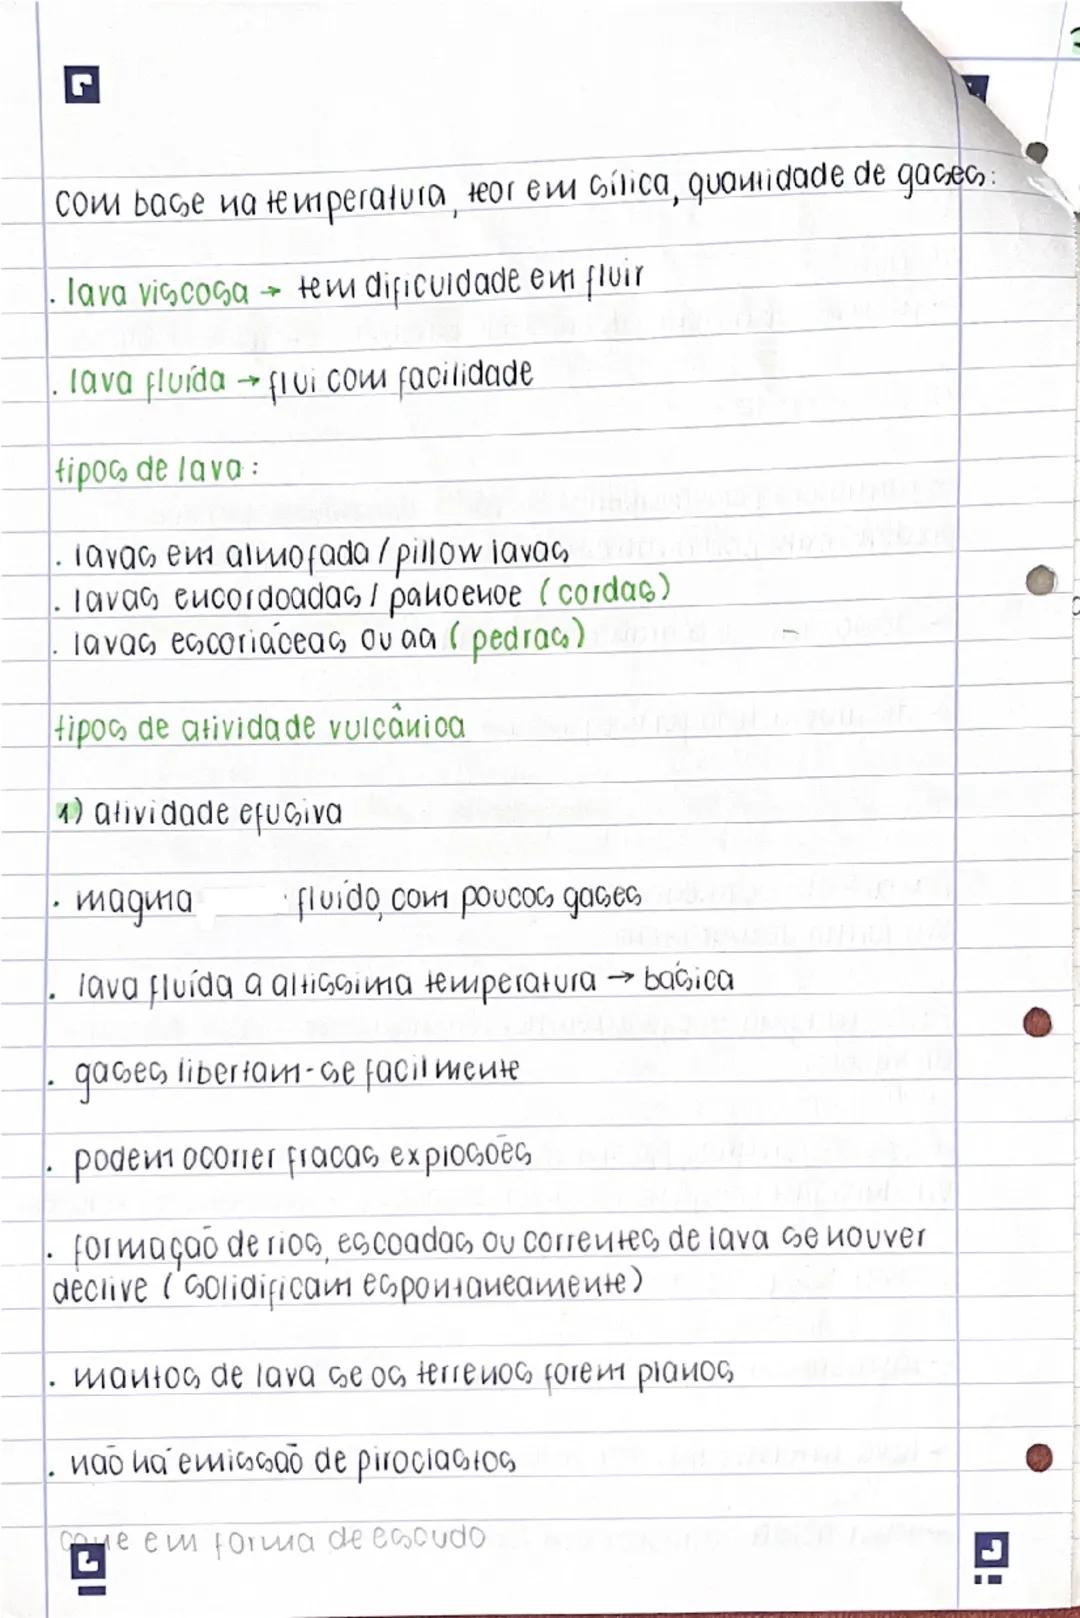 com base na temperatura, teor em sílica, quantidade de gases:
. lava viscosa → tem dificuldade em fluir
. lava fluída → flui com facilidade
tipos de lava :
. lavas em almofada / pillow lavas
. lavas encordoadas / pahoehoe (cordas)
. lavas escoriáceas ou aa (pedras)
tipos de atividade vulcânica
1) atividade efusiva
. magma fluído, com poucos gases
. lava fluída a altissima temperatura → básica
. gases libertam-se facilmente
. podem ocorrer fracas explosões
. formação de rios, escoadas ou correntes de lava se houver
declive (solidificam espontaneamente)
. mantos de lava se os terrenos forem planos
. não há emissão de piroclastos
cone em forma de escudo